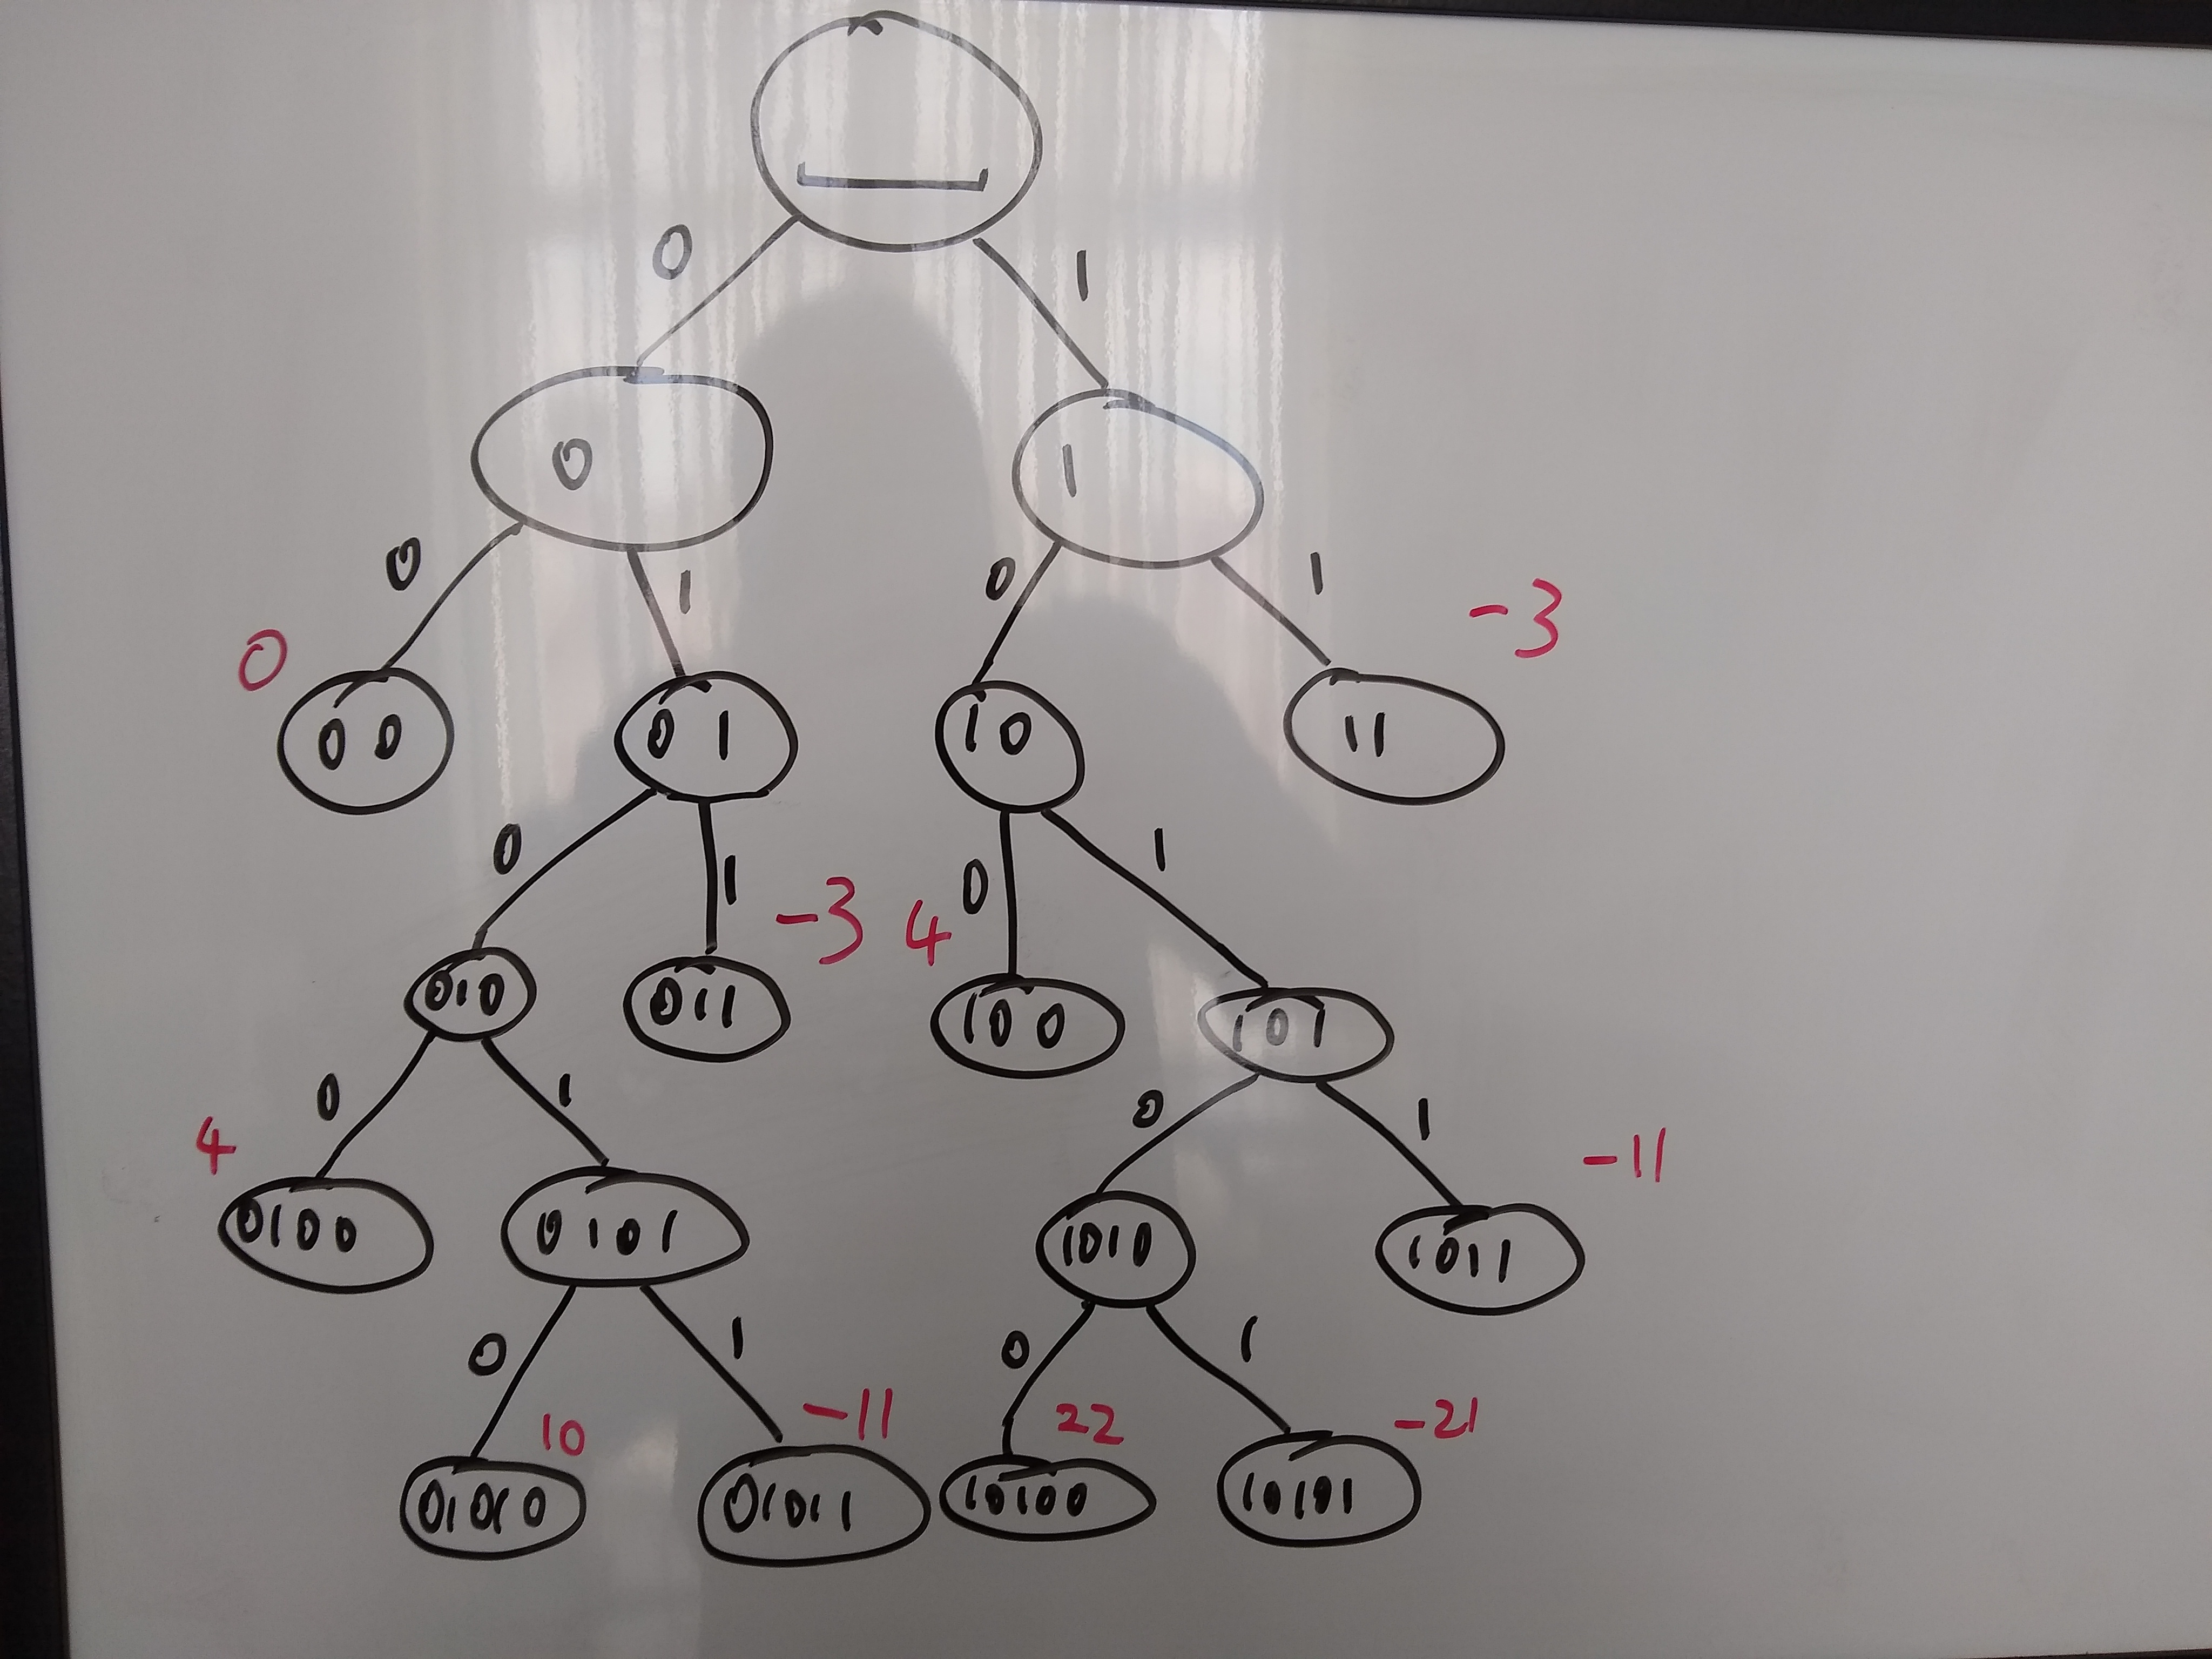 0 1
0 1
0 1 0 1 -3
0 00 01 10 11
0 1 -3 4 0 1
010 011 100 101
0 1 0 1 -11
4 0100 0101 1010 1011
0 1 0 1
10 -11 22 -21
01010 01011 10100 10101